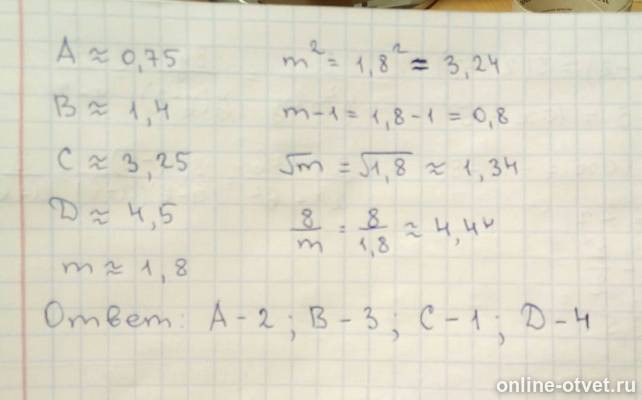 A ≈ 0,75
B ≈ 1,4
C ≈ 3,25
D ≈ 4,5
m ≈ 1,8
m² = 1,8² = 3,24
m - 1 = 1,8 - 1 = 0,8
√m = √1,8 ≈ 1,34
8/m = 8/1,8 ≈ 4,44
Ответ: A - 2 ; B - 3 ; C - 1 ; D - 4
online-otvet.ru